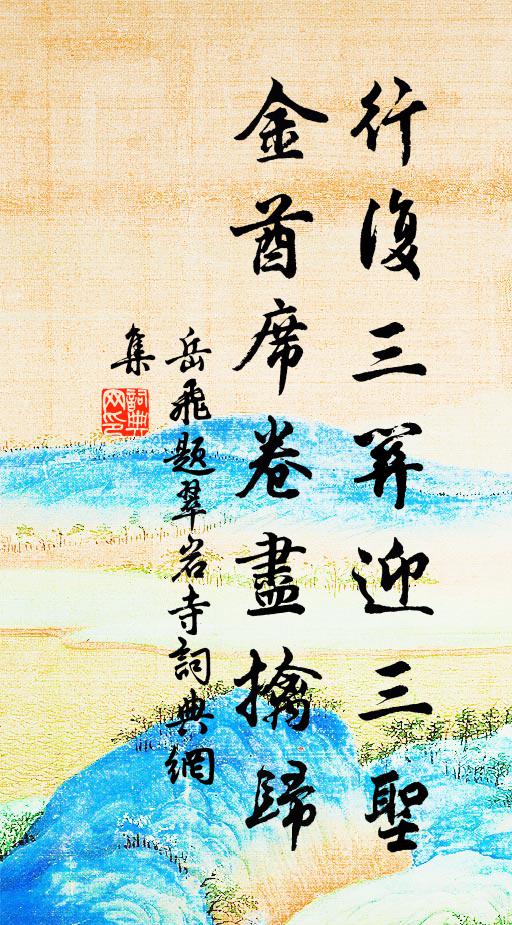 行復三關迎三聖
金酋席卷盡擒歸
岳飛題翠岩寺詞典網
集
詞典
网印